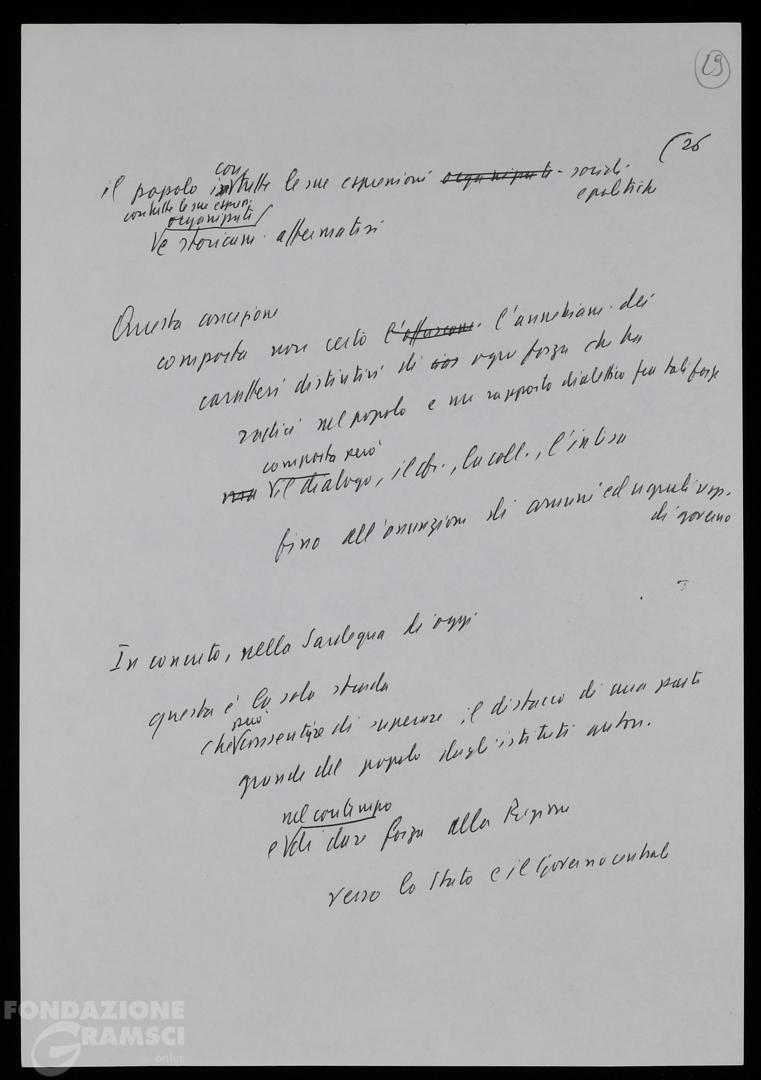 29
(26
con
il popolo tutte le sue espressioni organizzate - sociali
e politiche
con tutte le sue espress.
organizzate
e storicam. affermatesi
Questa concezione
comporta non certo l'offuscam. l'annebiam. dei
caratteri distintivi di ogni forza che ha
radici nel popolo e un rapporto dialettico fra tali forze
comporta però
il dialogo, il cfr., la coll., l'intesa
fino all'assunzione di comuni ed uguali resp.
di governo
In concreto, nella Sardegna di oggi
questa è la sola strada
può
che consentire di superare il distacco di una parte
grande del popolo dagli istituti auton.
nel contempo
e di dare forza alla Regione
verso lo Stato e il Governo centrale
FONDAZIONE
GRAMSCI
onlus